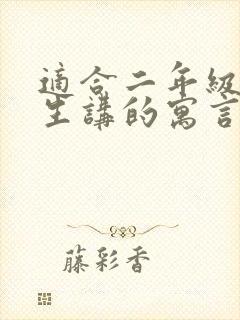 適合二年級
生講的寓言
藤彩香